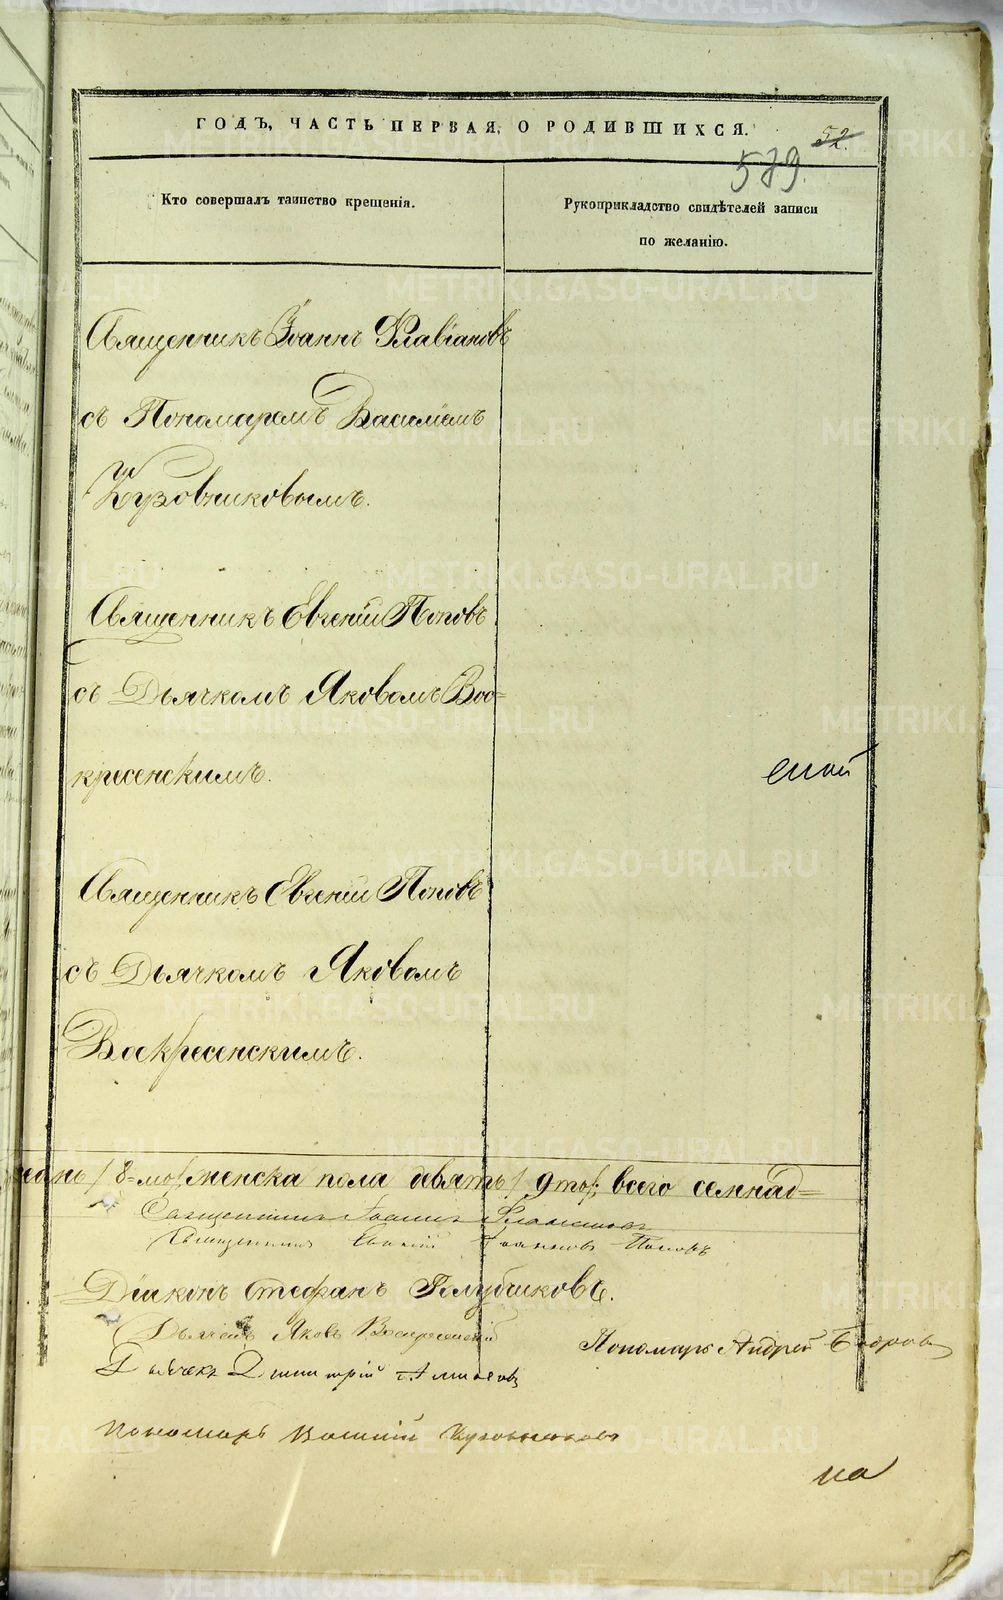 ГОДЪ, ЧАСТЬ ПЕРВАЯ, О РОДИВШИХСЯ.
52.
579.
Кто совершалъ таинство крещенія.
Рукоприкладство свидѣтелей записи
по желанію.
Священникъ Іоаннъ Флавіановъ
съ Пономаремъ Василіемъ
Кузовниковымъ.
Священникъ Евгеній Поповъ
съ Дьячкомъ Яковомъ Вос=
кресенскимъ.
Священникъ Евгеній Поповъ
съ Дьячкомъ Яковомъ
Воскресенскимъ.
8-мо/ женска пола девять/ 9 то/, всего семнад=
Священникъ Іоаннъ Флавіановъ
Священникъ Евгеній Іоанновъ Поповъ
Діаконъ Стефанъ Голубчиковъ.
Дьячекъ Яковъ Воскресенскій
Пономарь Андрей
Дьячекъ Димитрій
Пономарь Василій Кузовниковъ
на
METRIKI.GASO-URAL.RU